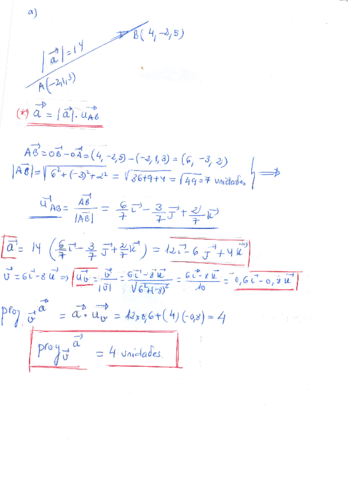 a)
B(4,-2,5)
|a⃗|=14
A(-2,1,3)
(*) a⃗ = |a⃗|·u⃗AB
AB⃗ = OB⃗ - OA⃗ = (4,-2,5) - (-2,1,3) = (6, -3, 2)
|AB⃗| = √(6²+(-3)²+2²) = √(36+9+4) = √49 = 7 unidades } ⟹
u⃗AB = AB⃗/|AB⃗| = 6/7 i⃗ - 3/7 J⃗ + 2/7 K⃗
a⃗ = 14 (6/7 i⃗ - 3/7 J⃗ + 2/7 K⃗) = 12i⃗ - 6 J⃗ + 4K⃗
v⃗ = 6i⃗ - 8K⃗ ⇒ u⃗v = v⃗/|v⃗| = (6i⃗ - 8K⃗)/√(6²+(-8)²) = (6i⃗ - 8K⃗)/10 = 0,6i⃗ - 0,8K⃗
proy v⃗ a⃗ = a⃗ · u⃗v = 12×0,6+(4)(-0,8) = 4
proy v⃗ a⃗ = 4 unidades